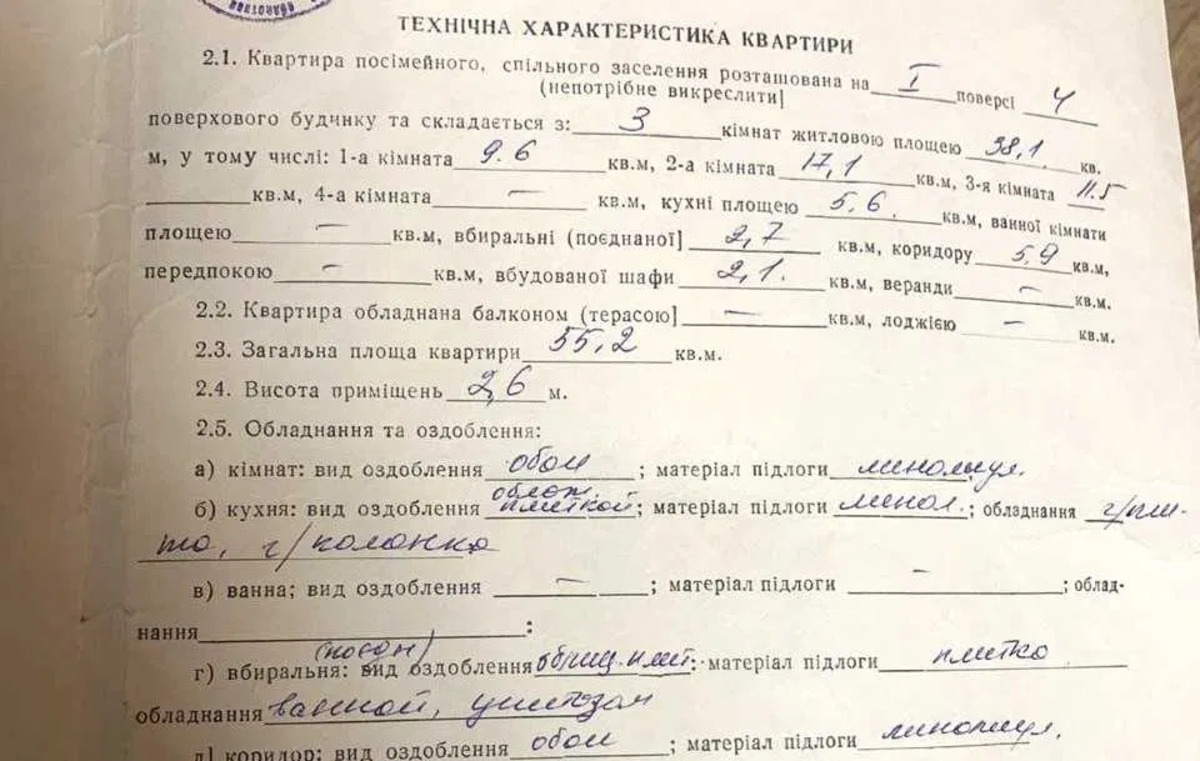 ТЕХНІЧНА ХАРАКТЕРИСТИКА КВАРТИРИ
2.1. Квартира посімейного, спільного заселення розташована на I поверсі 4
(непотрібне викреслити]
поверхового будинку та складається з: 3 кімнат житловою площею 38,1 кв.
м, у тому числі: 1-а кімната 9.6 кв.м, 2-а кімната 17,1 кв.м, 3-я кімната 11.5
кв.м, 4-а кімната — кв.м, кухні площею 5,6. кв.м, ванної кімнати
площею — кв.м, вбиральні (поєднаної] 2,7 кв.м, коридору 5,9 кв.м,
передпокою — кв.м, вбудованої шафи 2,1. кв.м, веранди — кв.м.
2.2. Квартира обладнана балконом (терасою] — кв.м, лоджією — кв.м.
2.3. Загальна площа квартири 55,2 кв.м.
2.4. Висота приміщень 2,6 м.
2.5. Обладнання та оздоблення:
а) кімнат: вид оздоблення обои ; матеріал підлоги линолеул.
облож.
б) кухня: вид оздоблення плиткой; матеріал підлоги линол.; обладнання г/пли-
та, г/колонка
в) ванна; вид оздоблення — ; матеріал підлоги — ; облад-
нання :
(поєдн)
г) вбиральня: вид оздоблення облиц. плит.: матеріал підлоги плитка
обладнання ванной, унитазом
д) коридор: вид оздоблення обои ; матеріал підлоги линолеул.